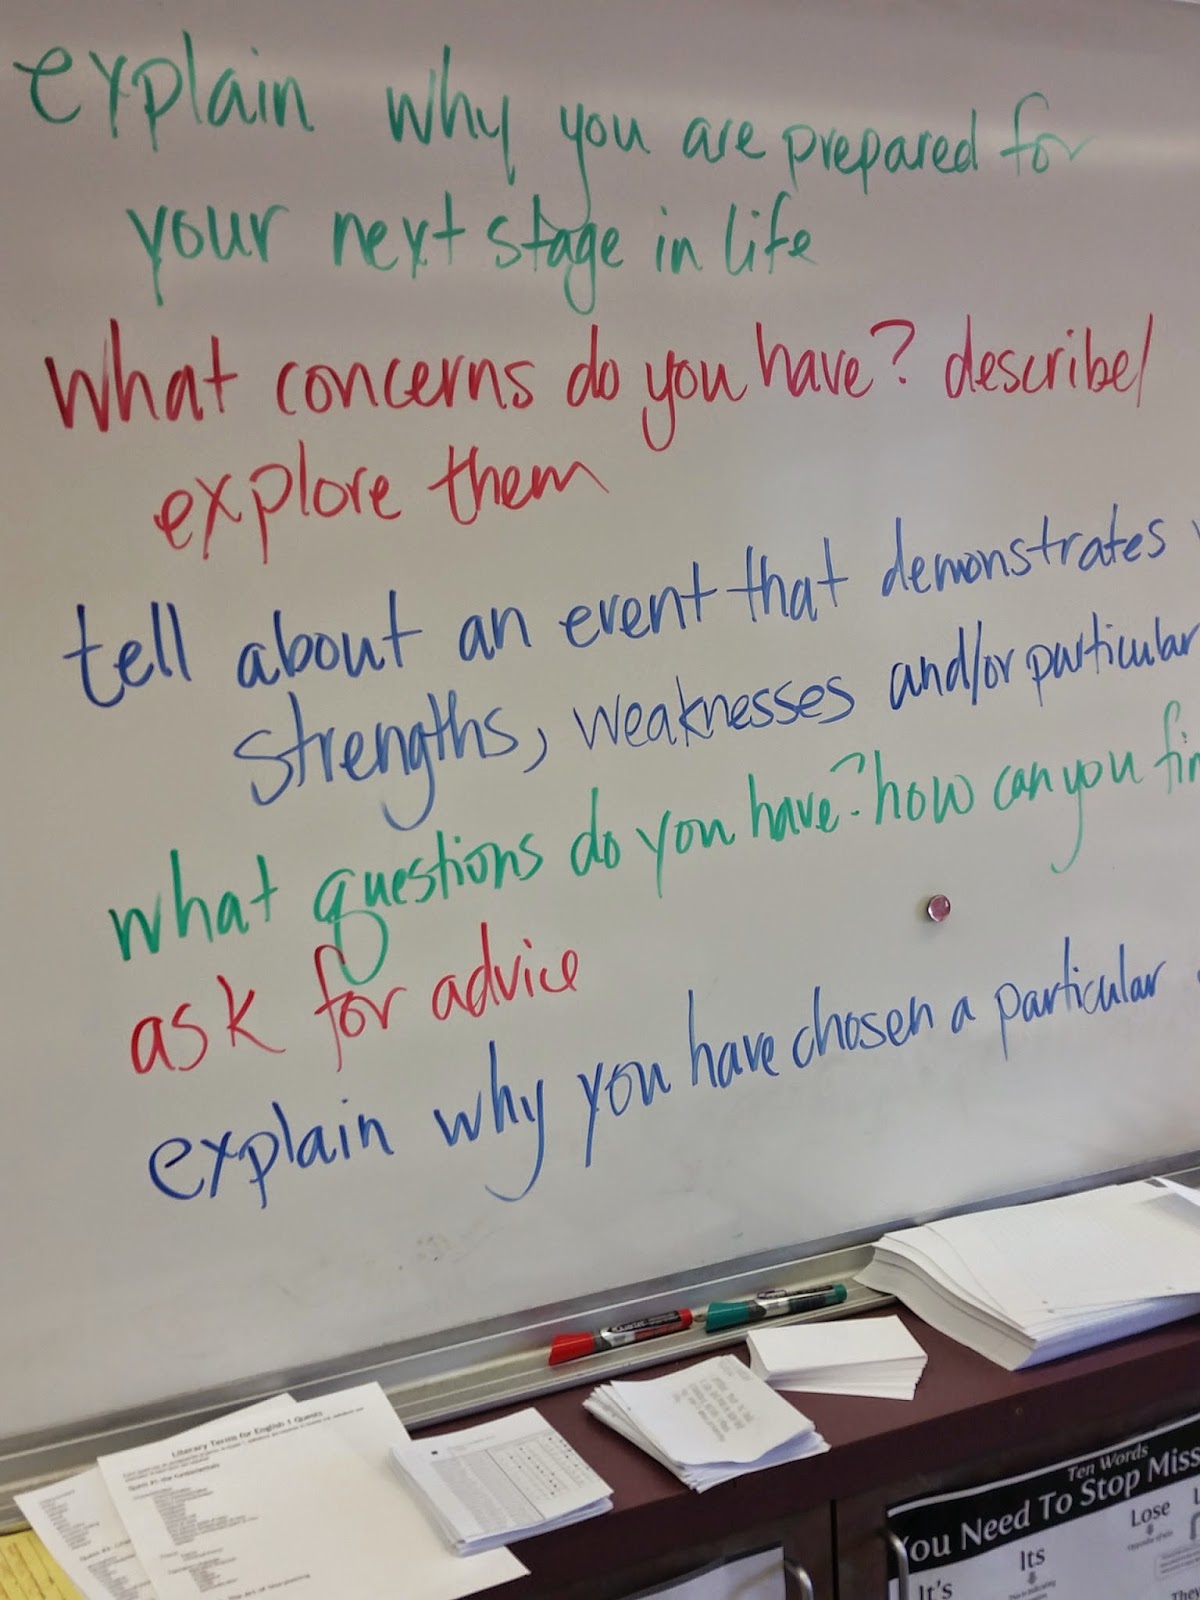 explain why you are prepared for
your next stage in life
what concerns do you have? describe/
explore them
tell about an event that demonstrates
strengths, weaknesses and/or particular
what questions do you have? how can you
ask for advice
explain why you have chosen a particular
Literary Terms for English 1 Quests
Ten Words
You Need To Stop Miss
Lose
Its
It's